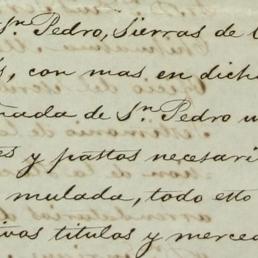 Sn. Pedro, Sierras de
con mas en dich
ada de Sn. Pedro u
es y pastos necesari
mulada, todo esto
ivos titulos y merced